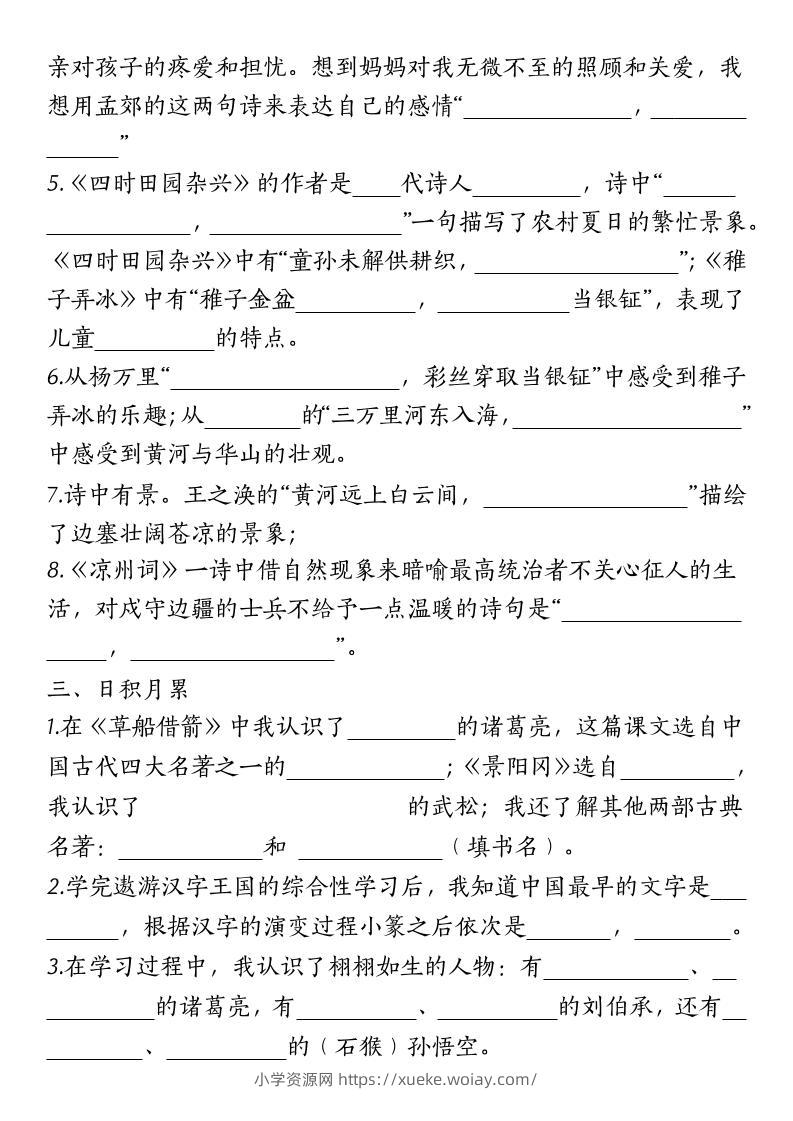 亲对孩子的疼爱和担忧。想到妈妈对我无微不至的照顾和关爱，我
想用孟郊的这两句诗来表达自己的感情“______________，________
______”
5.《四时田园杂兴》的作者是____代诗人_________，诗中“______
____________，________________”一句描写了农村夏日的繁忙景象。
《四时田园杂兴》中有“童孙未解供耕织，_________________”；《稚
子弄冰》中有“稚子金盆__________，___________当银钲”，表现了
儿童__________的特点。
6.从杨万里“___________________，彩丝穿取当银钲”中感受到稚子
弄冰的乐趣；从________的“三万里河东入海，___________________”
中感受到黄河与华山的壮观。
7.诗中有景。王之涣的“黄河远上白云间，_________________”描绘
了边塞壮阔苍凉的景象；
8.《凉州词》一诗中借自然现象来暗喻最高统治者不关心征人的生
活，对戍守边疆的士兵不给予一点温暖的诗句是“_______________
_____，_________________”。
三、日积月累
1.在《草船借箭》中我认识了_________的诸葛亮，这篇课文选自中
国古代四大名著之一的_____________；《景阳冈》选自__________，
我认识了 的武松；我还了解其他两部古典
名著：____________和 ____________（填书名）。
2.学完遨游汉字王国的综合性学习后，我知道中国最早的文字是___
______，根据汉字的演变过程小篆之后依次是_______，________。
3.在学习过程中，我认识了栩栩如生的人物：有____________、__
_________的诸葛亮，有__________、__________的刘伯承，还有__
________、__________的（石猴）孙悟空。
小学资源网 https://xueke.woiay.com/